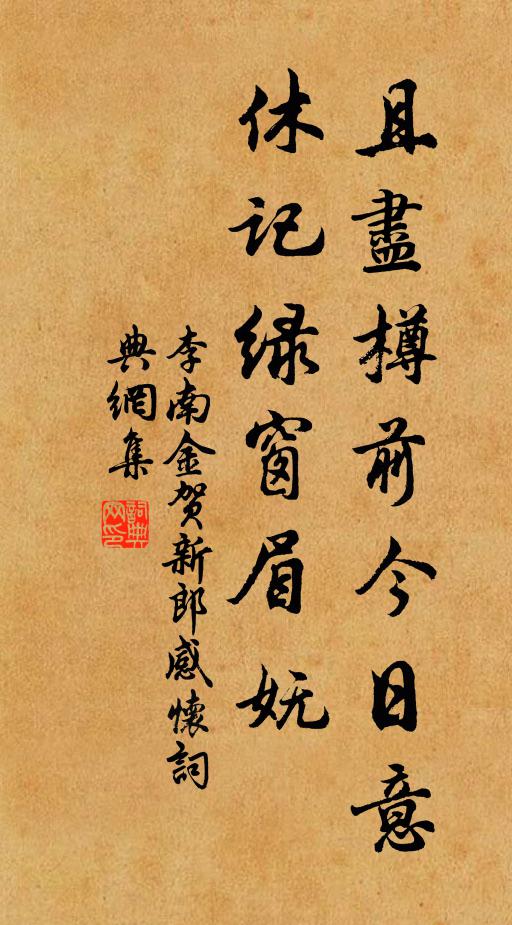 且盡樽前今日意
休记绿窗眉妩
李南金贺新郎感懷詞
典網集
詞典網印